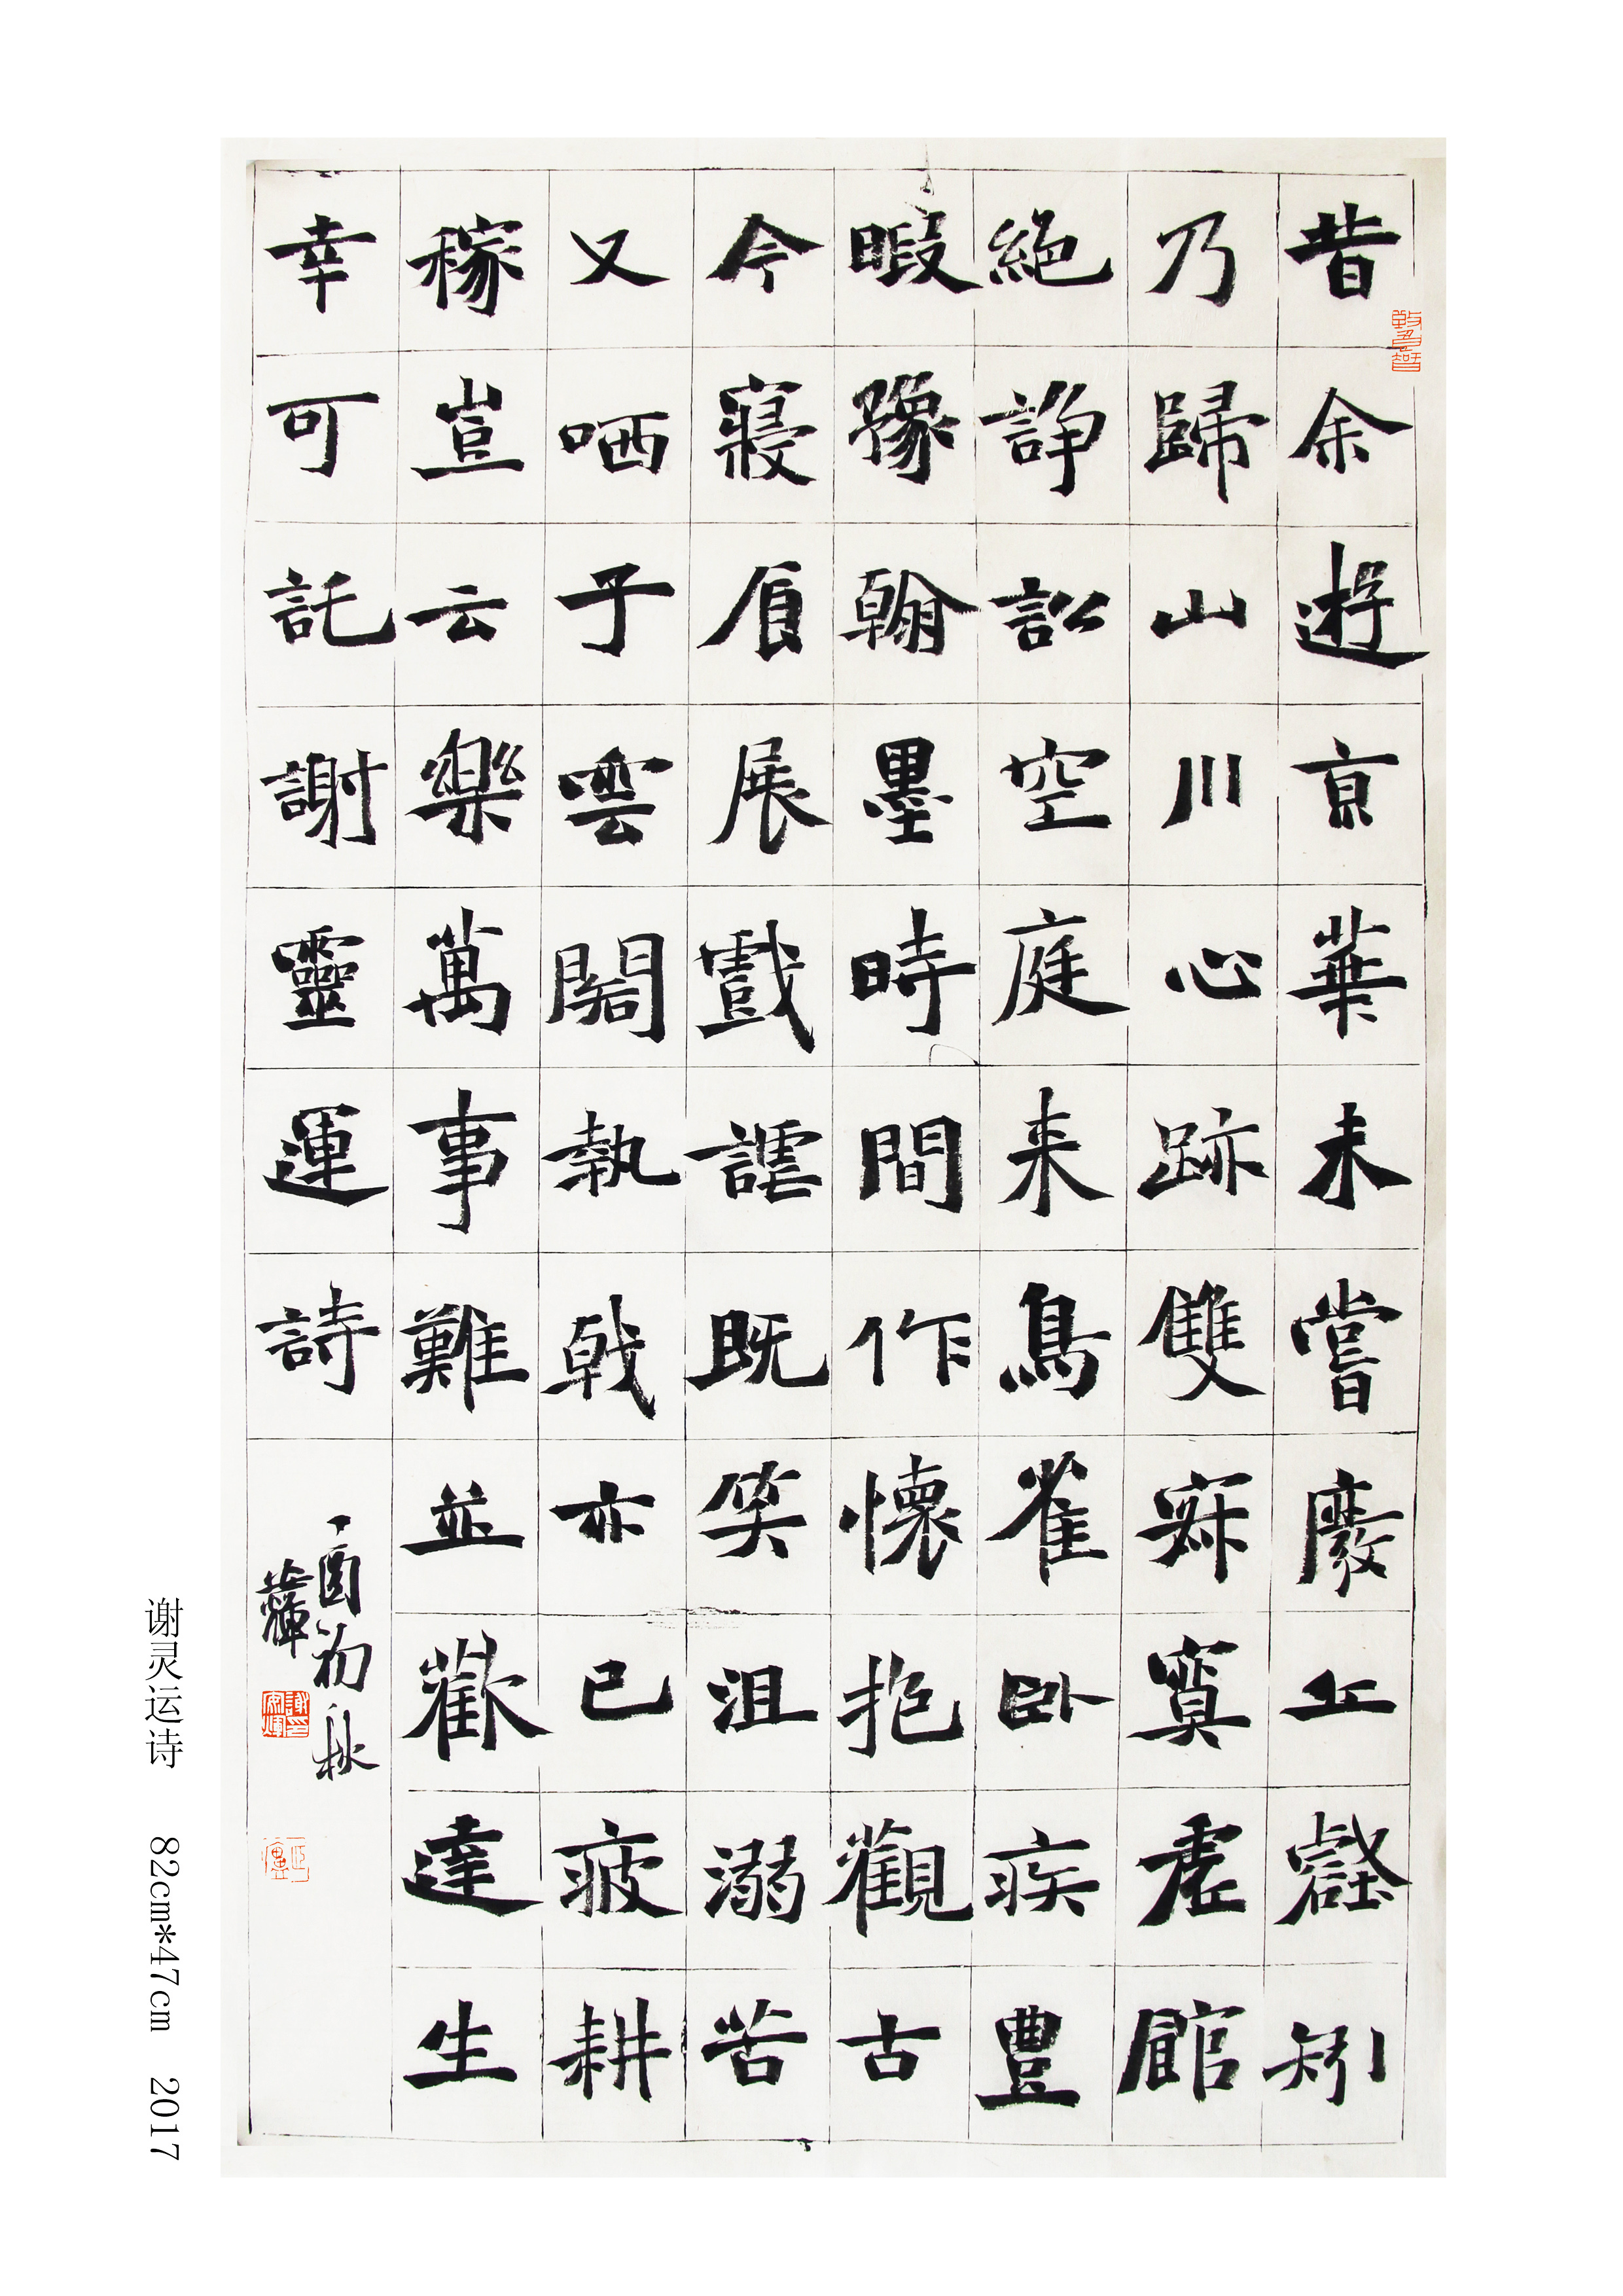 昔余遊京華未嘗廢丘壑矧
乃歸山川心跡雙寂寞虛館
絕諍訟空庭来鳥雀臥疾豐
暇豫翰墨時間作懷抱觀古
今寢食展戲謔既笑沮溺苦
又哂子雲閣執戟亦已疲耕
稼豈云樂萬事難並歡達生
幸可託謝靈運詩
丁酉初秋
谢灵运诗 82cm*47cm 2017